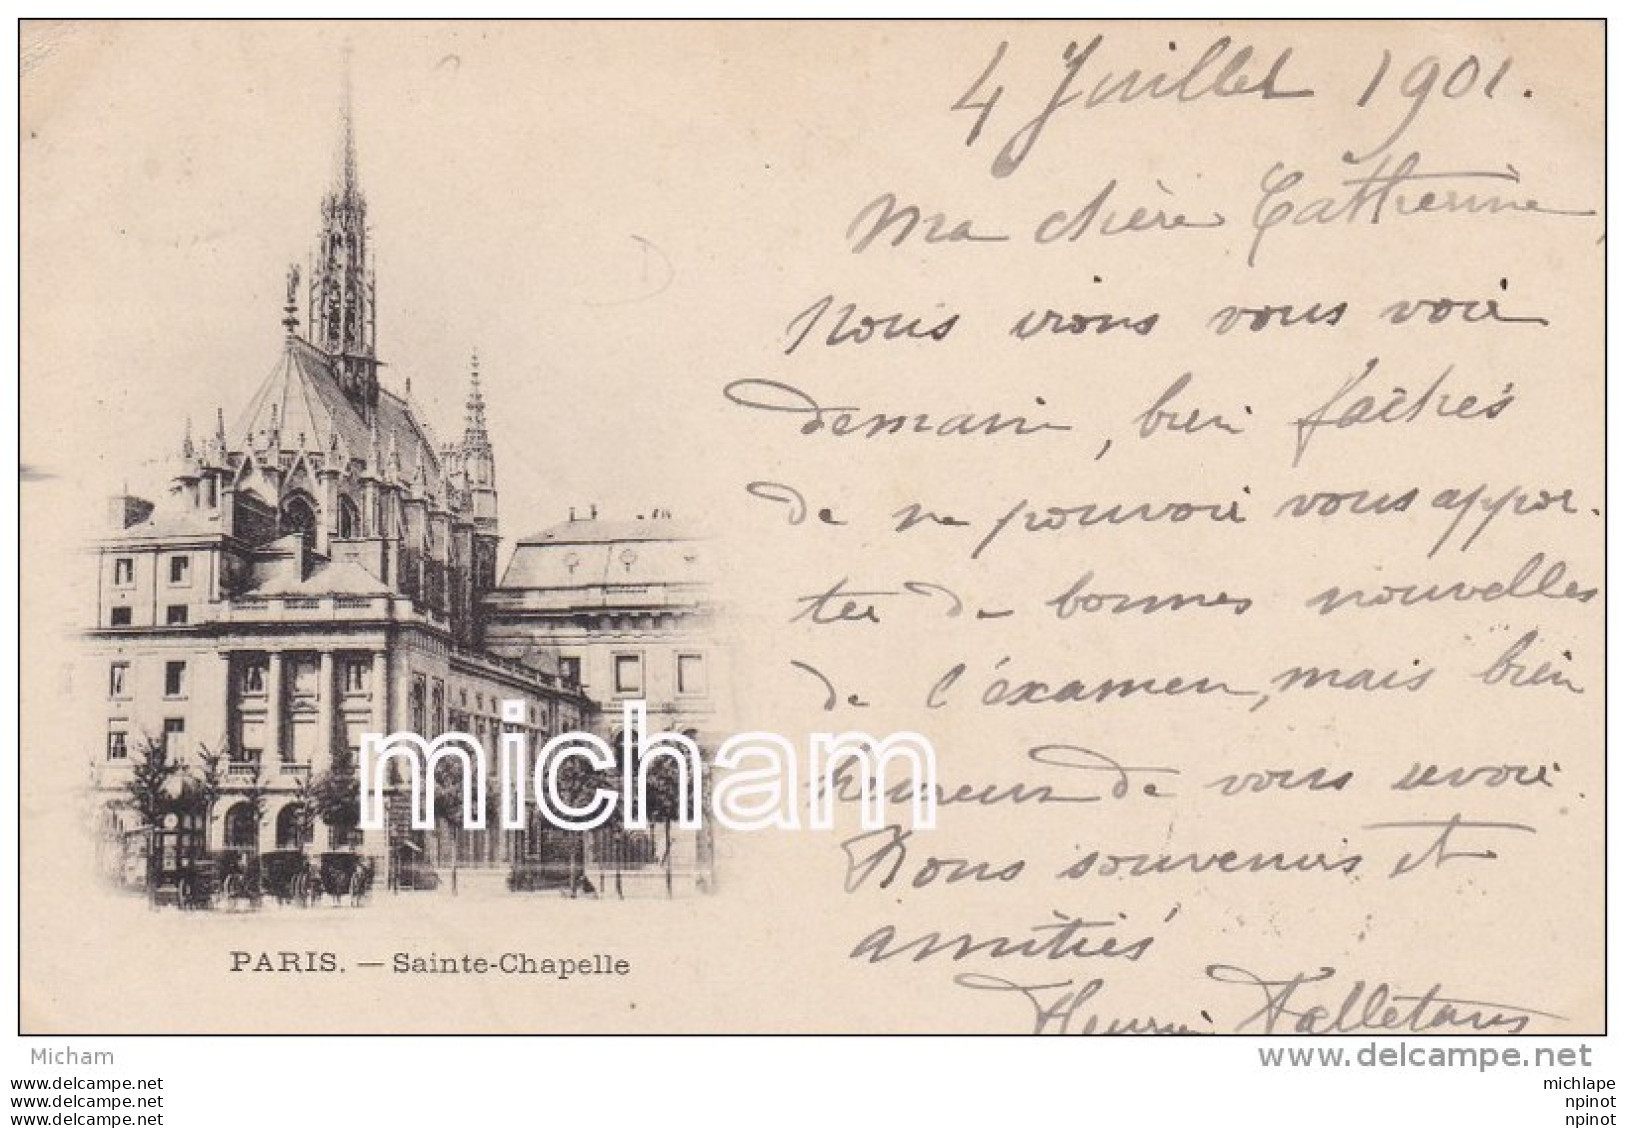 4 Juillet 1901.
Ma chère Catherine,
Nous irons vous voir
demain, bien fâchés
de ne pouvoir vous appor-
ter de bonnes nouvelles
de l'éxamen, mais bien
heureux de vous revoir.
Bons souvenirs et
amitiés
Henri
micham
PARIS. — Sainte-Chapelle
Micham
www.delcampe.net
www.delcampe.net
www.delcampe.net
www.delcampe.net
michlape
npinot
npinot